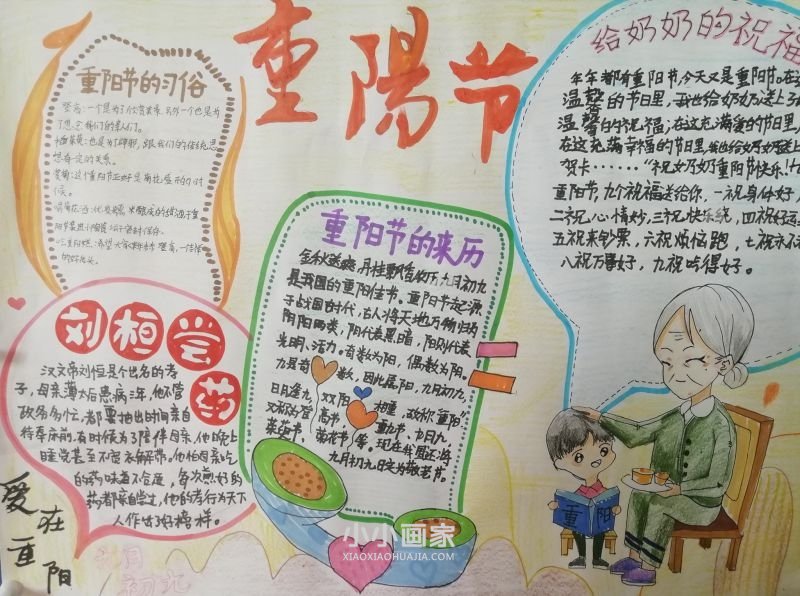 重陽节
重阳节的习俗
登高:一个是为了欣赏美景,另外一个也是为
了想念我们的亲人们。
插茱萸:也是为了辟邪,跟我们的传统思
想有一定的关系。
赏菊:这个重阳节正好是菊花盛开的时
候。
给奶奶的祝福
年年都有重阳节,今天又是重阳节。在这
温馨的节日里,我也给奶奶送上了
温馨的祝福;在这充满爱的节日里,
在这充满幸福的节日里,我也给奶奶送上
贺卡……“祝奶奶重阳节快乐!九
重阳节,九个祝福送给你,一祝身体好,
二祝心情妙,三祝快乐绕,四祝好运
五祝来钞票,六祝烦恼跑,七祝
八祝万事好,九祝吃得好。
重阳节的来历
金秋送爽,丹桂飘香,农历九月初九
是我国的重阳佳节。重阳节起源
于战国时代,古人将天地万物归为
阴阳两类,阴代表黑暗,阳则代表
光明、活力。奇数为阳,偶数为阴。
九是奇数,因此属阳,九月初九,
日月逢九,双阳相重,故称“重阳”
又称为登高节、重九节、九月九、
茱萸节、菊花节等。现在我国还将
九月初九日定为敬老节。
刘桓尝药
汉文帝刘恒是个出名的孝
子,母亲薄太后患病三年,他不管
政务多忙,都要抽出时间亲自
侍奉床前,有时候为了陪伴母亲,他晚上
睡觉甚至不宽衣解带。他怕母亲吃
的药味道不合适,每次煎好的
药都亲自尝过,他的孝行为天下
人作出了好榜样。
爱在重阳
重阳
小小画家
XIAOXIAOHUAJIA.COM